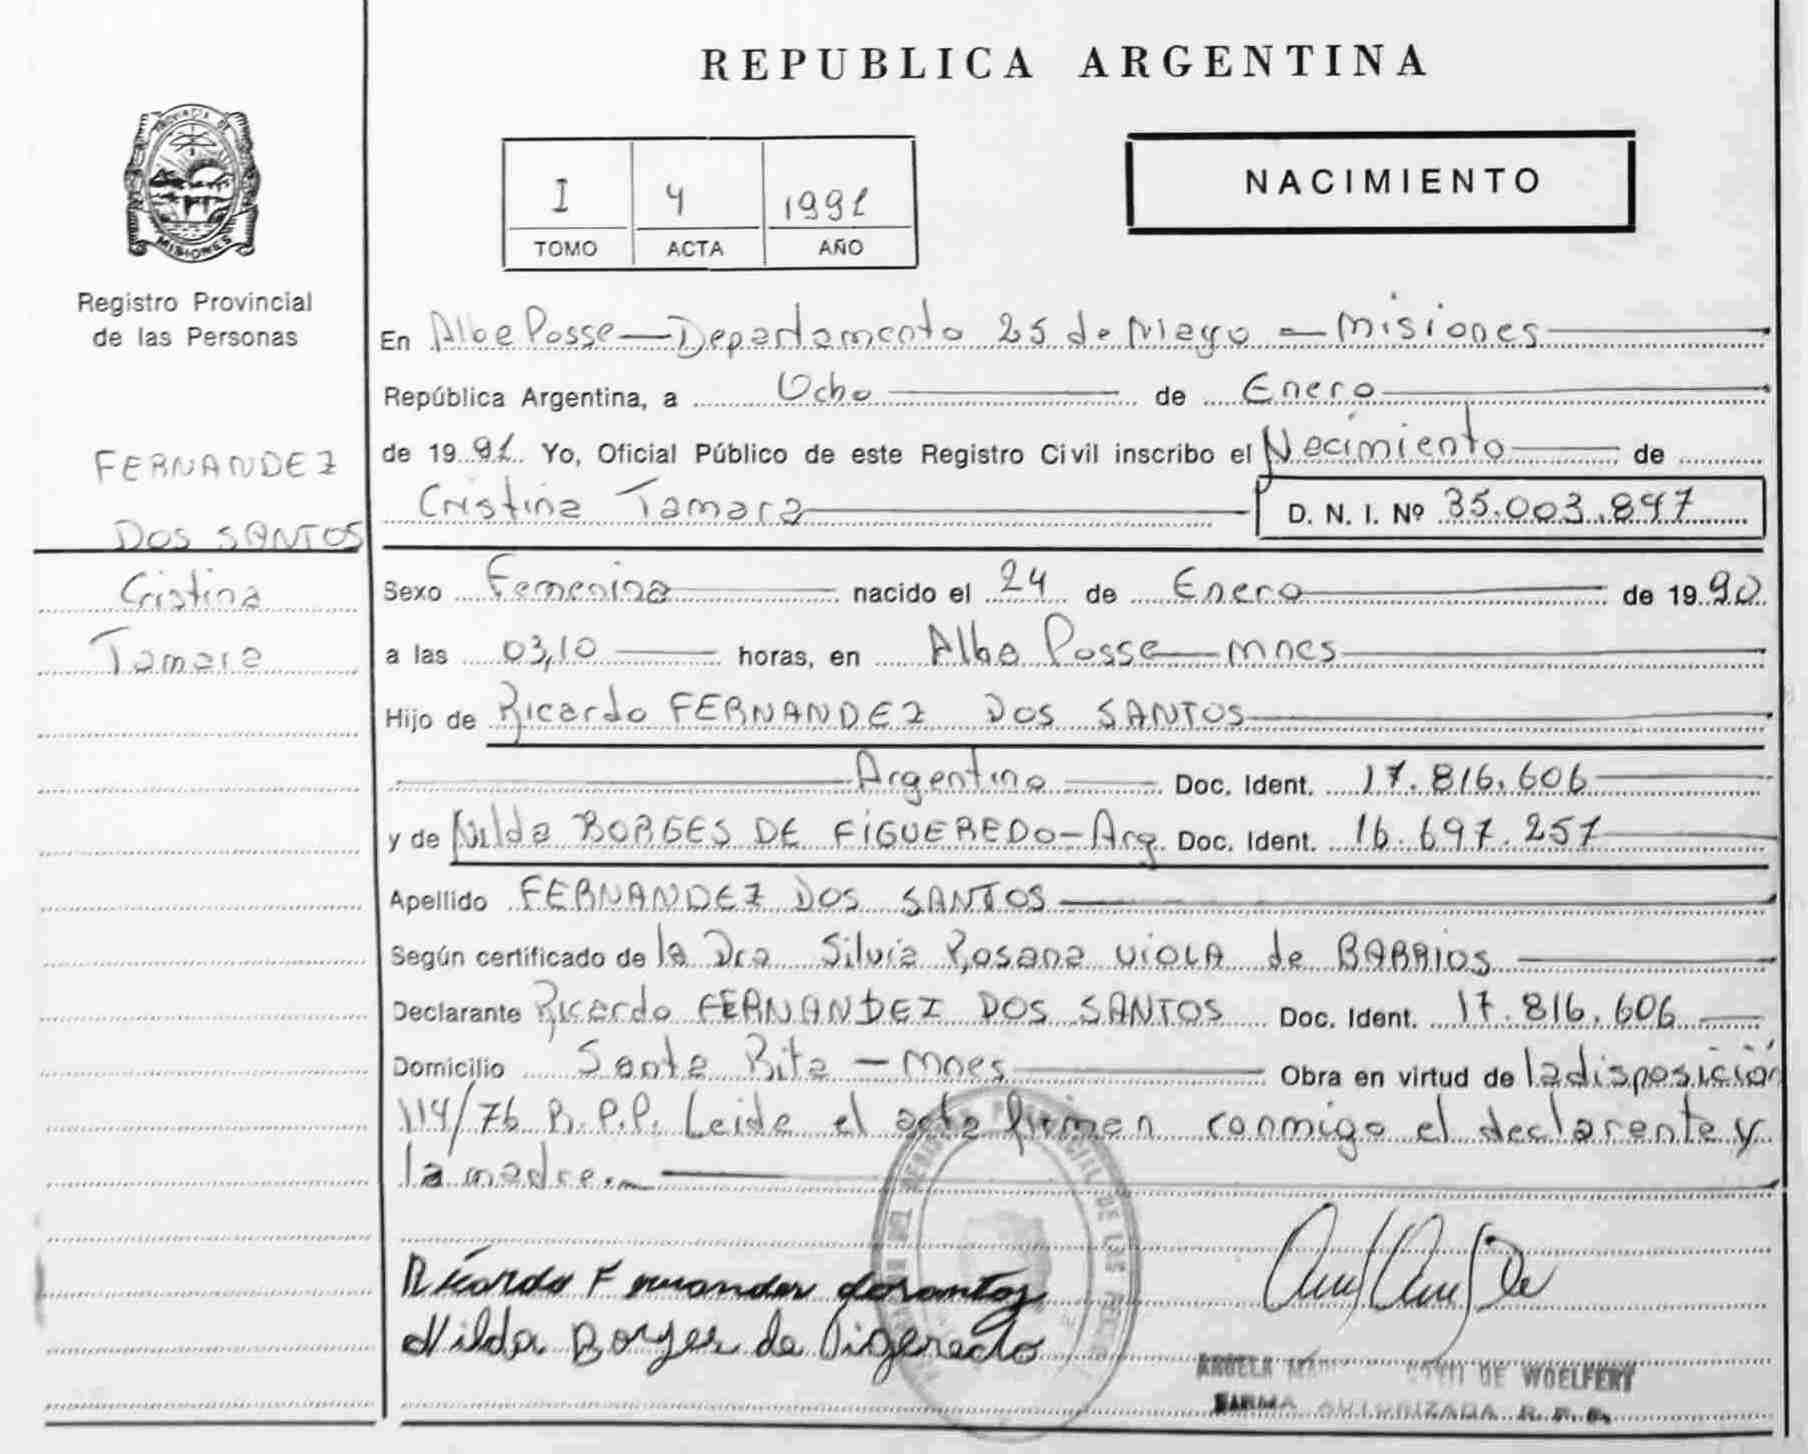 REPUBLICA ARGENTINA
PROVINCIA DE
MISIONES
Registro Provincial
de las Personas
I 4 1991
TOMO ACTA AÑO
NACIMIENTO
FERNANDEZ
DOS SANTOS
Cristina
Tamara
En Alba Posse — Departamento 25 de Mayo — Misiones
República Argentina, a Ocho de Enero
de 1991. Yo, Oficial Público de este Registro Civil inscribo el Nacimiento de
Cristina Tamara D. N. I. Nº 35.003.897
Sexo Femenina nacido el 24 de Enero de 1990
a las 03,10 horas, en Alba Posse — mnes
Hijo de Ricardo FERNANDEZ DOS SANTOS
Argentino Doc. Ident. 17.816.606
y de Nilda BORGES DE FIGUEREDO - Arg. Doc. Ident. 16.697.257
Apellido FERNANDEZ DOS SANTOS
Según certificado de la Dra Silvia Rosana VIOLA de BARRIOS
Declarante Ricardo FERNANDEZ DOS SANTOS Doc. Ident. 17.816.606
Domicilio Santa Rita — Mnes Obra en virtud de la disposición
114/76 R.P.P. Leida el acta firman conmigo el declarante y
la madre.
Ricardo Fernandez dosantos
Nilda Borges de Figueredo
DE WOELFERT
FIRMA AUTORIZADA R. P. P.